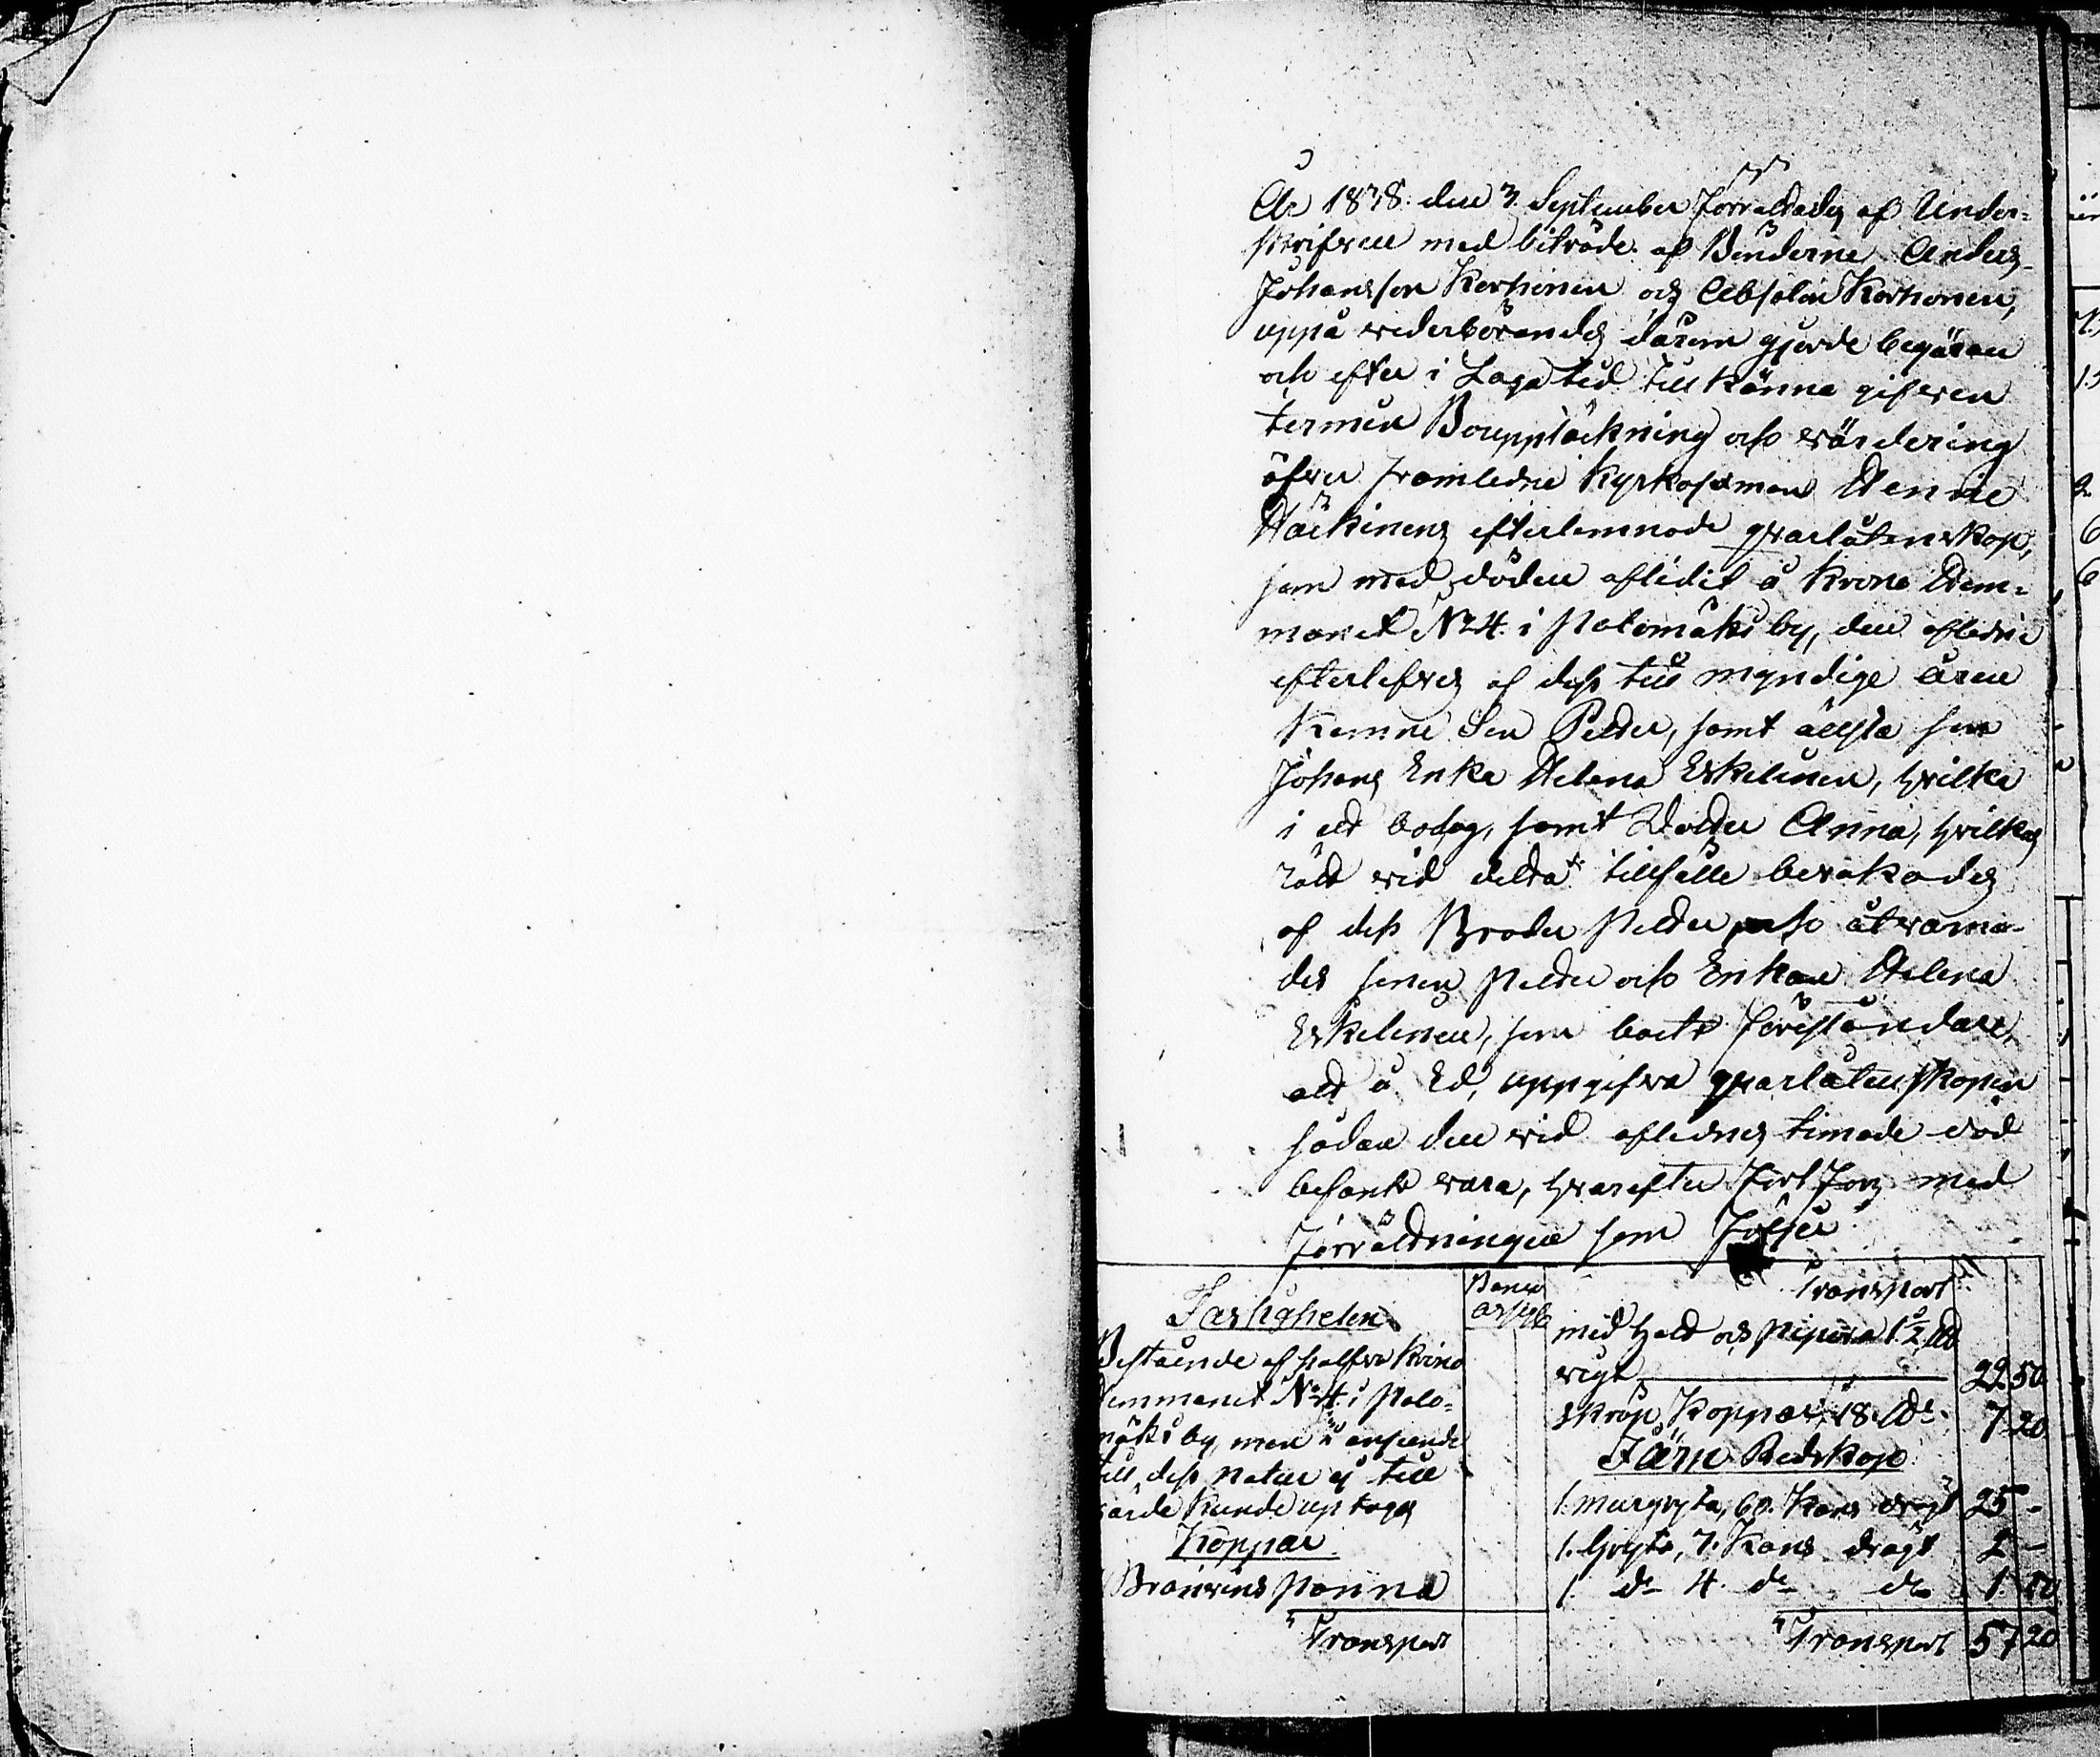 År 1838. den 3. September förrättades af Under-
skrifven med biträde af Bönderne Anders
Johansson Korhonen och Absolon Korhonen,
uppå vederbörandes därom gjorde begäran
och efter i Laga tid tillkänna gifven
termin Bouppteckning och värdering
öfver framledne Kyrkosexman Henric
Häckinens efterlemnade qvarlåtenskap,
som med döden aflidit å Krono Hem-
manet No 4. i Palomäki by, den aflidne
efterlefves af dess till myndige åren
komne Son Petter, samt äldsta son
Johans Enka Helena Eskelinen, hvilka
i ett bolag, samt Dotter Anna, hvilkas
rätt vid detta tillfälle bevakades
af dess Broder Petter, och åtvarna-
des sonen Petter och Enkan Helena
Eskelinen, som boets föreståndare,
att å Ed, uppgifva qvarlåtenskapen
sådan den vid aflidnes timade död
befants vara, hvarefter fortfors med
förrättningen som följer
Fastigheten Banco assigt
Bestående af halfva Krono
Hemmanet No 4. i Palo-
mäki by, men i anseende
till dess natur ej till
värde kunde uptagas
Koppar
1 Bränvins panna
Transport
Transport
med hatt och pipor 1 1/2 Lb
vigt 22 50
skrap Koppar, 18. lb 7 20
Järn Redskap
1. murgryta, 60. Kans dragt 25 -
1. Gryta, 7. Kans dragt 2 -
1 do 4. do do 1. 50
Transport 57 20